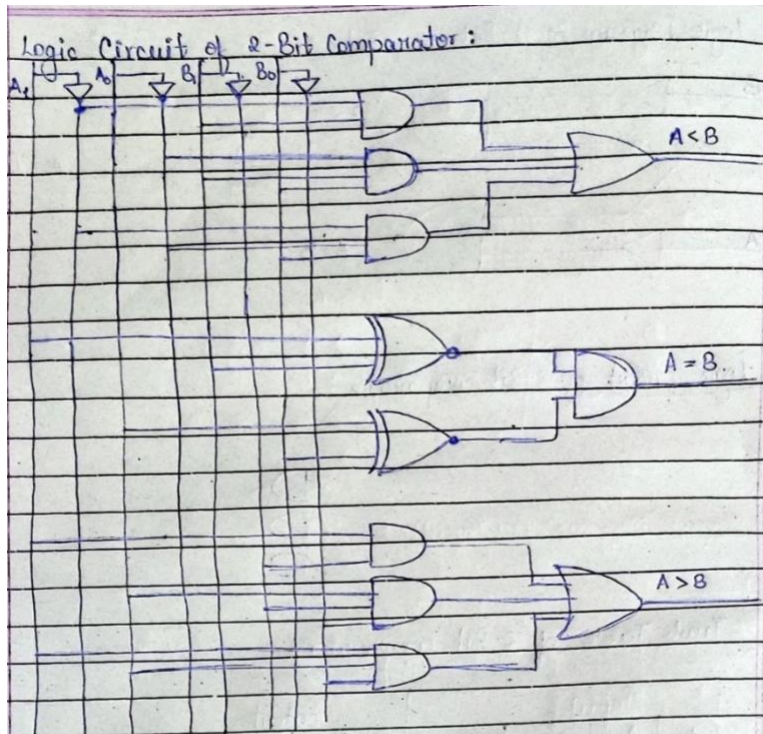 Logic Circuit of 2-Bit Comparator:
A₁ A₀ B₁ B₀
A < B
A = B
A > B